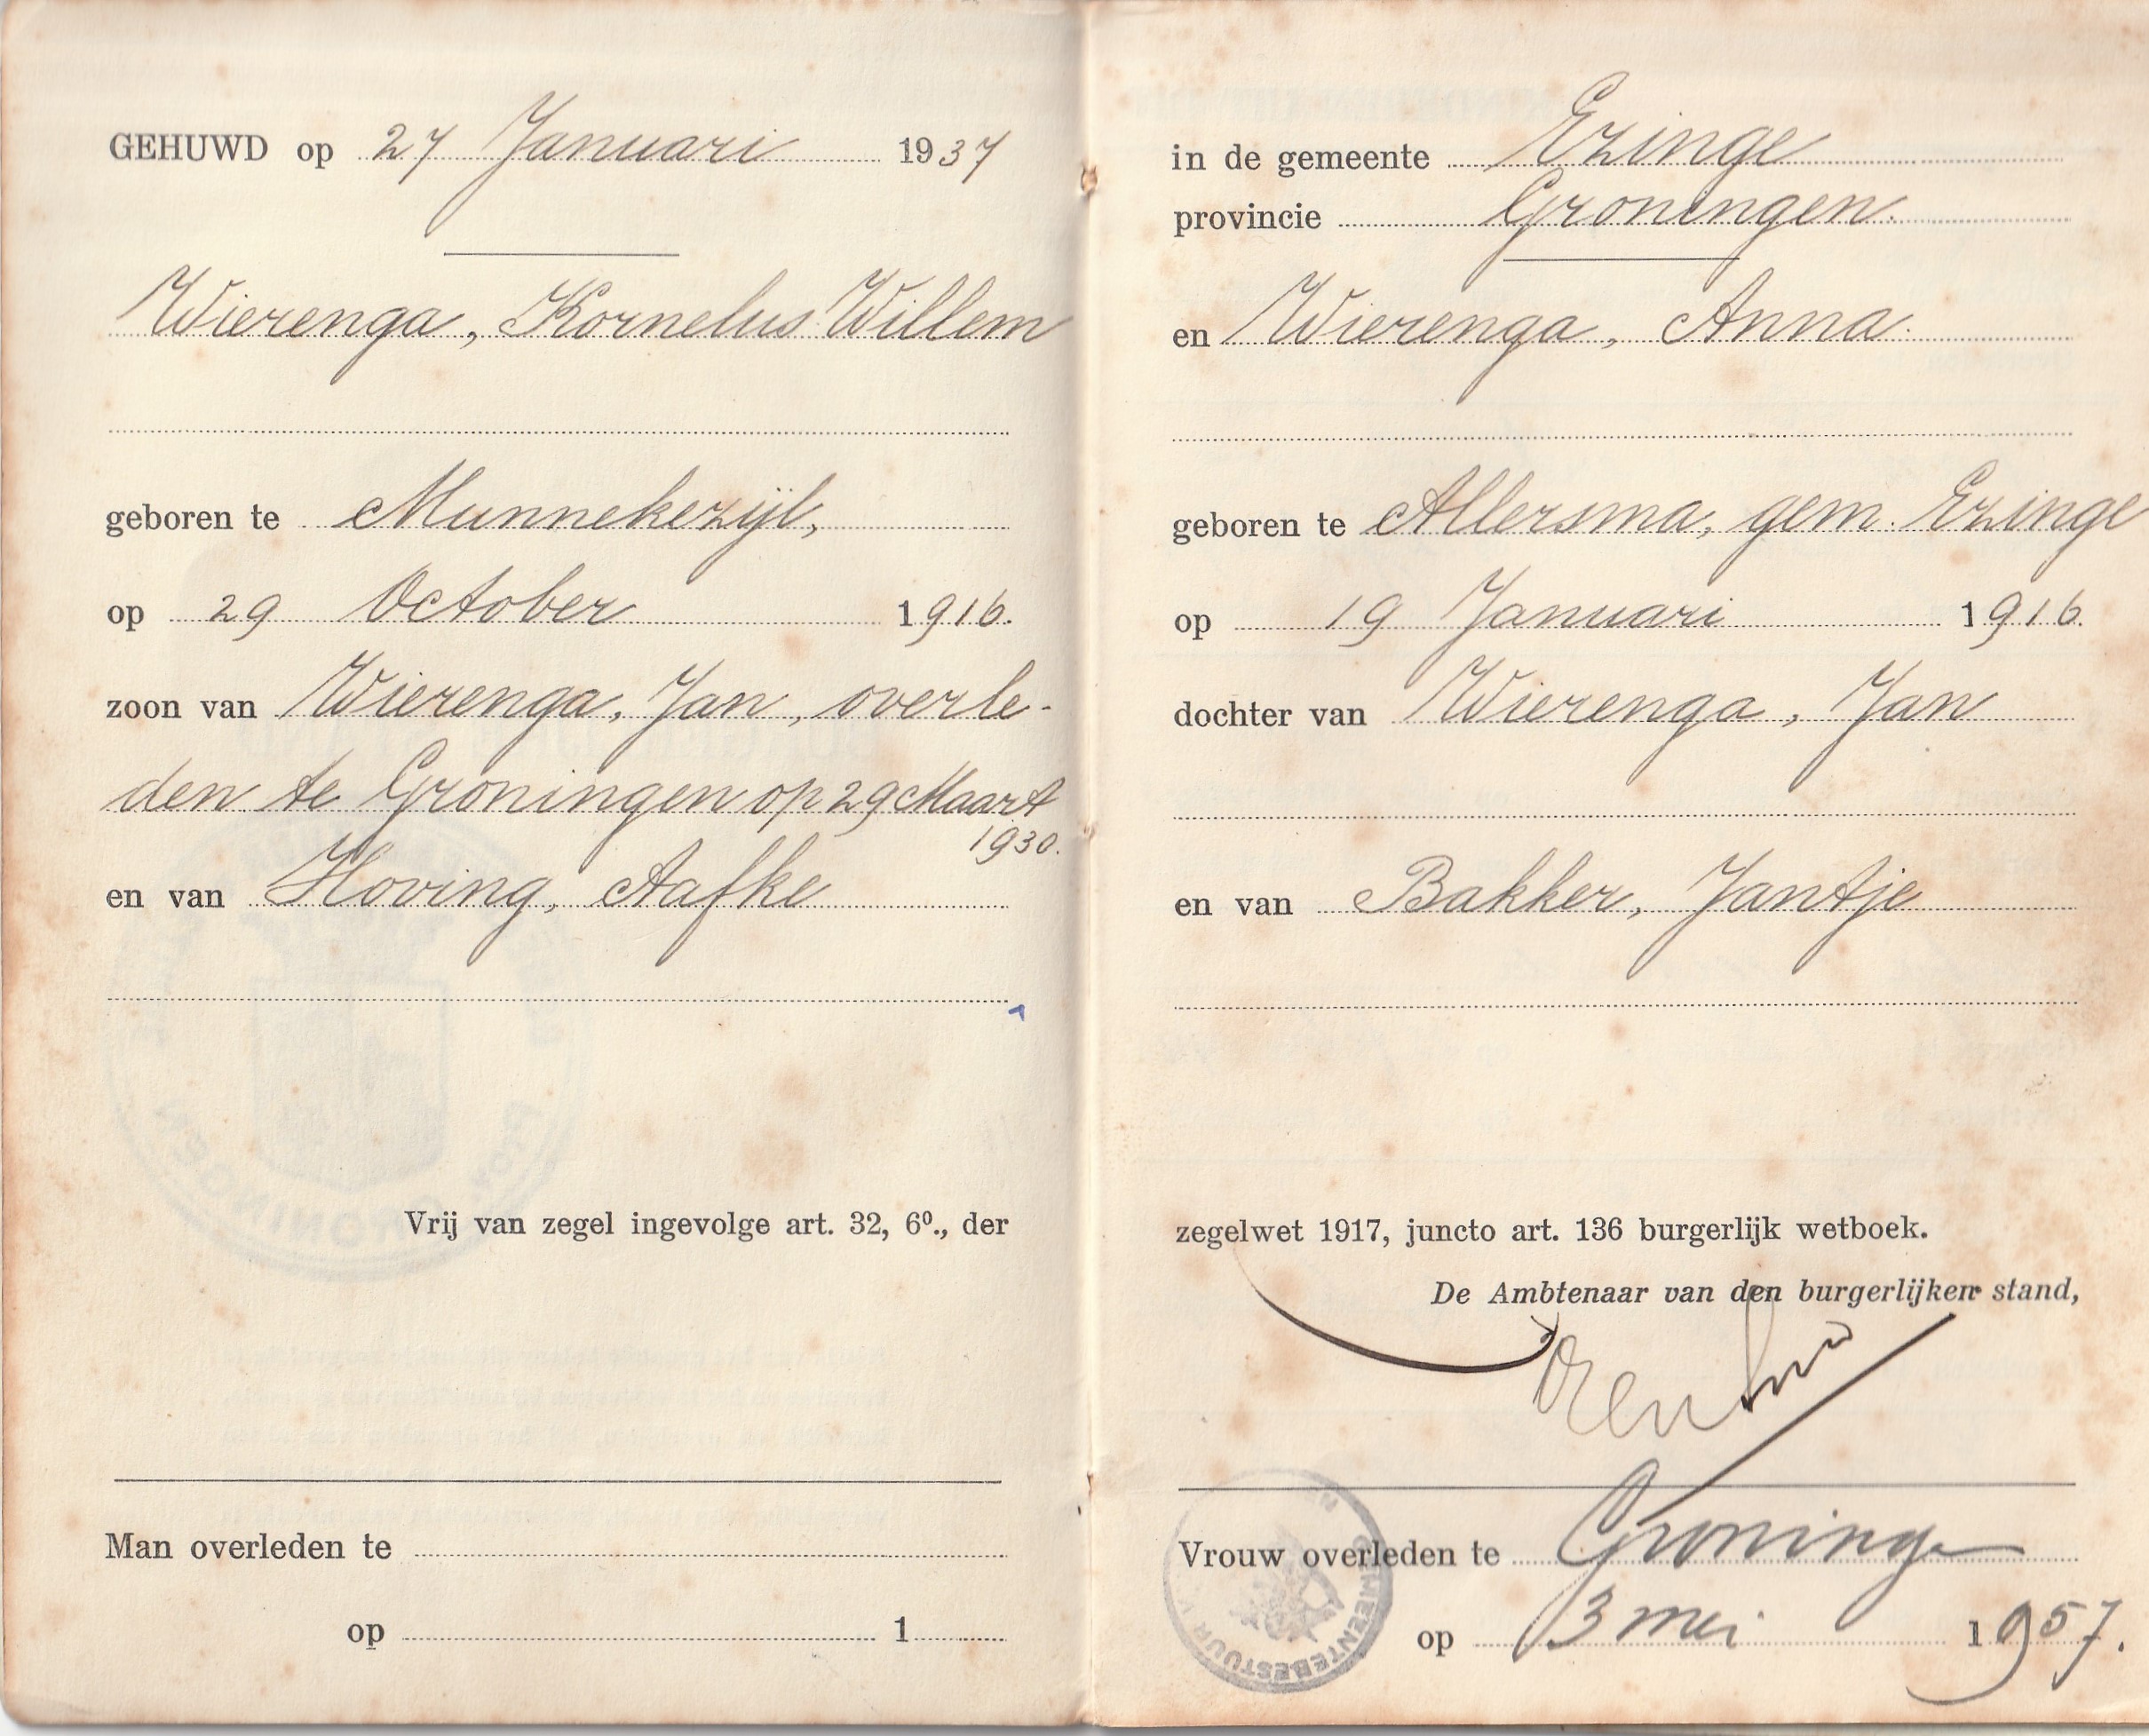 GEHUWD op 27 Januari 1937
Wierenga, Kornelus Willem
geboren te Munnekezijl,
op 29 October 1916.
zoon van Wierenga, Jan, overle-
den te Groningen op 29 Maart
1930.
en van Hoving, Aafke
Vrij van zegel ingevolge art. 32, 6⁰., der
Man overleden te
op 1
in de gemeente Ezinge
provincie Groningen.
en Wierenga, Anna.
geboren te Allersma, gem. Ezinge
op 19 Januari 1916.
dochter van Wierenga, Jan
en van Bakker, Jantje
zegelwet 1917, juncto art. 136 burgerlijk wetboek.
De Ambtenaar van den burgerlijken stand,
Vrouw overleden te Groningen
op 3 mei 1957.
GEMEENTEBESTUUR